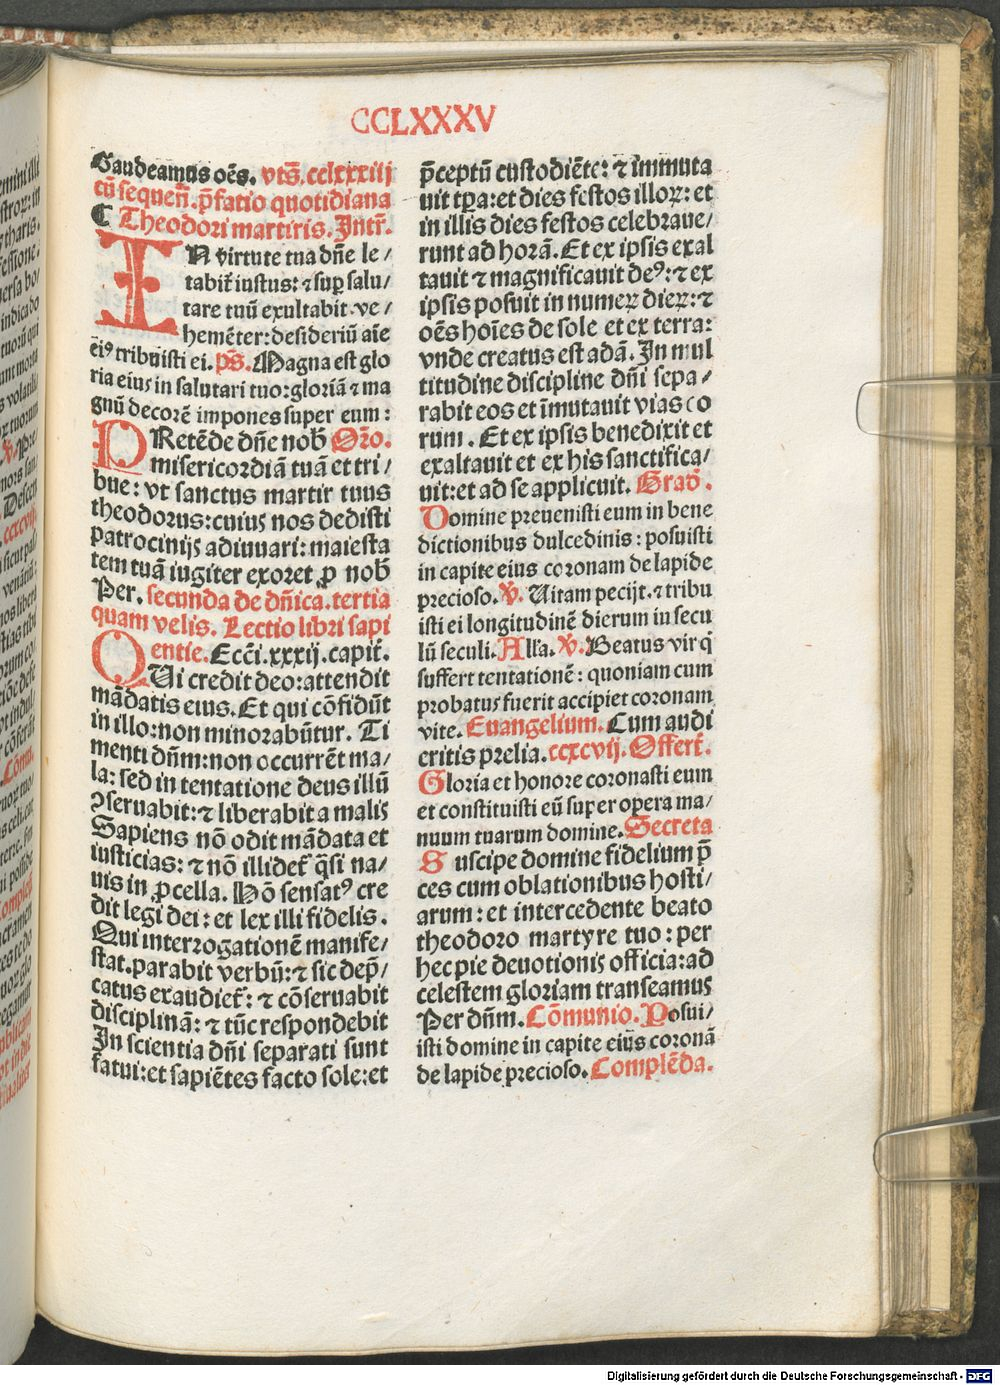 CCLXXXV
Gaudeamus oēs. vts̄. cclxxxiij
cū sequen̄. p̄fatio quotidiana
¶ Theodori martiris. Intr̄.
IN virtute tua dn̄e le/
tabit̄ iustus: ⁊ sup̲ salu/
tare tuū exultabit ve/
hemēter: desideriū aīe
eiꝰ tribuisti ei. ps̄. Magna est glo
ria eius in salutari tuo: gloriā ⁊ ma
gnū decorē impones super eum:
PRetēde dn̄e nob̄ Oro̅.
misericordiā tuā et tri/
bue: vt sanctus martir tuus
theodorus: cuius nos dedisti
patrocinijs adiuuari: maiesta
tem tuā iugiter exoret ꝓ nob̄
Per. secunda de dn̄ica. tertia
quam velis. Lectio libri sapi
entie. Ecc̄i. xxxij. capit̄.
QVi credit deo: attendit
mādatis eius. Et qui cōfidūt
in illo: non minorabūtur. Ti
menti dn̄m: non occurrēt ma/
la: sed in tentatione deus illū
ꝯseruabit: ⁊ liberabit a malis
Sapiens nō odit mādata et
iusticias: ⁊ nō illidet̄ q̄si na/
uis in ꝓcella. Hō sensatꝰ cre
dit legi dei: et lex illi fidelis.
Qui interrogationē manife/
stat. parabit verbū: ⁊ sic dep̄/
catus exaudiet̄: ⁊ cōseruabit
disciplinā: ⁊ tūc respondebit
In scientia dn̄i separati sunt
fatui: et sapiētes facto sole: et
p̄ceptū custodiēte: ⁊ immuta
uit tp̄a: et dies festos illoꝝ: et
in illis dies festos celebraue/
runt ad horā. Et ex ipsis exal
tauit ⁊ magnificauit deꝰ: ⁊ ex
ipsis posuit in numeꝝ dieꝝ: ⁊
oēs hoīes de sole et ex terra:
vnde creatus est adā. In mul
titudine discipline dn̄i sepa/
rabit eos et īmutauit vias eo
rum. Et ex ipsis benedixit et
exaltauit et ex his sanctifica/
uit: et ad se applicuit. Grad̄.
Domine preuenisti eum in bene
dictionibus dulcedinis: posuisti
in capite eius coronam de lapide
precioso. ℣. Uitam pecijt. ⁊ tribu
isti ei longitudinē dierum in secu
lū seculi. All'a. ℣. Beatus vir q̇
suffert tentationē: quoniam cum
probatus fuerit accipiet coronam
vite. Euangelium. Cum audi
eritis prelia. ccxcvij. Offert̄.
Gloria et honore coronasti eum
et constituisti eū super opera ma/
nuum tuarum domine. Secreta
Suscipe domine fidelium p̄
ces cum oblationibus hosti/
arum: et intercedente beato
theodoro martyre tuo: per
hec pie deuotionis officia: ad
celestem gloriam transeamus
Per dn̄m. Cōmunio. Posui/
isti domine in capite eius coronā
de lapide precioso. Complēda.
Digitalisierung gefördert durch die Deutsche Forschungsgemeinschaft - DFG